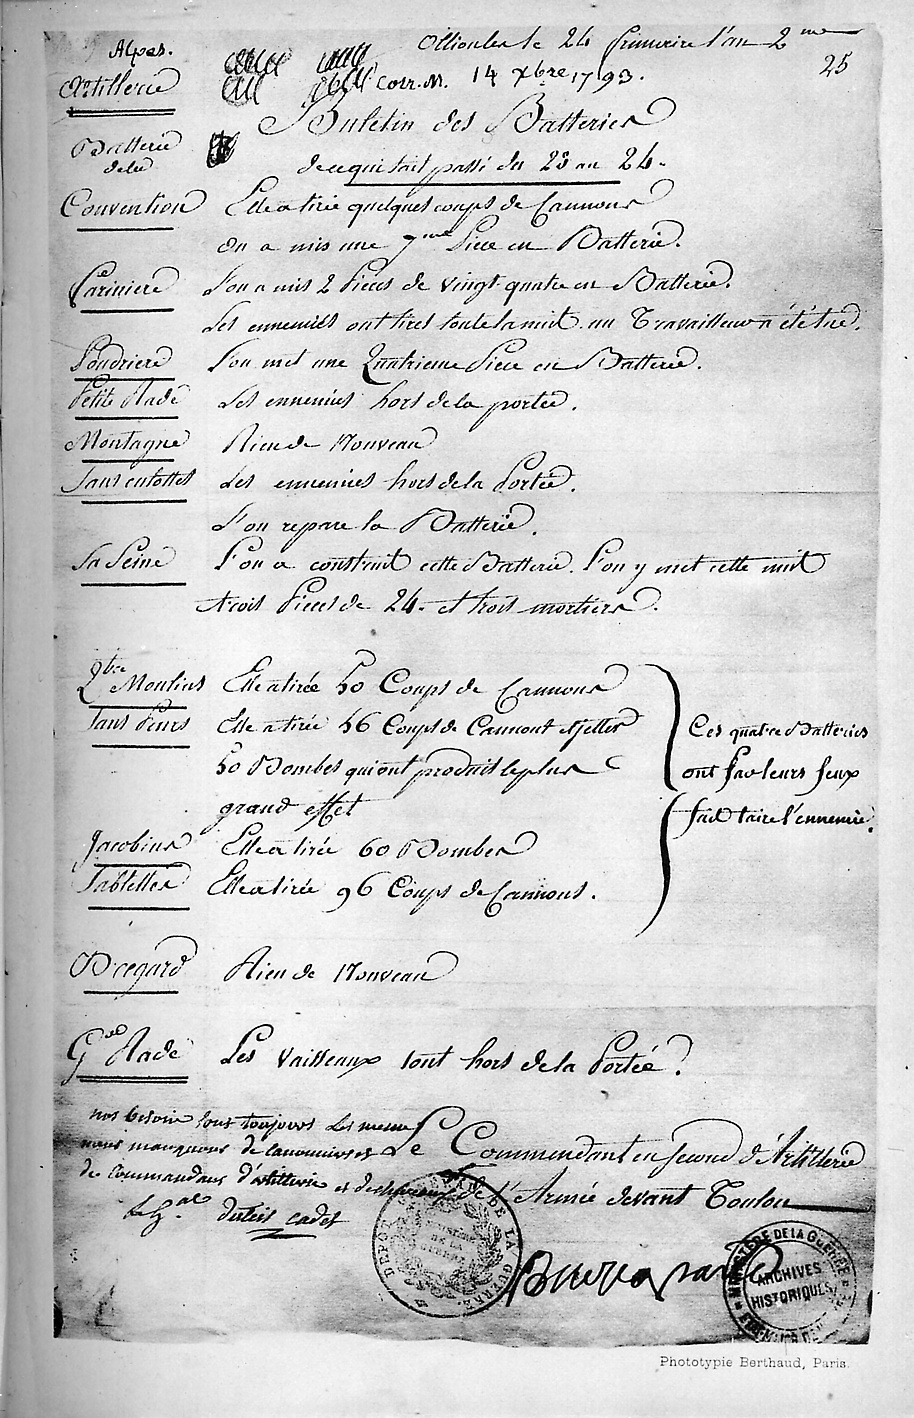 Alpes.
Ollioules le 24 frimaire l'an 2me
25
Artillerie
Corr. M. 14 Xbre 1793.
Buletin des Batteries
de ce qui s'ait passé du 23 au 24.
Batterie
de la
Convention Elle a tirée quelques coups de Cannons
On a mis une 7me Piece en Batterie.
Cariniere L'on a mis 2 Pieces de vingt quatre en Batterie.
Les ennemies ont tirés toute la nuit un Travailleur a été tué.
Poudriere L'on met une Quatrieme Piece en Batterie.
Petite Rade Les ennemies hors de la portée.
Montagne Rien de Nouveau
Sans culottes Les ennemies hors de la Portée.
L'on repare la Batterie.
La Seine L'on a construit cette Batterie. L'on y met cette nuit
trois Pieces de 24. et trois mortiers.
4bre Moulins Elle a tirée 50 Coups de Cannons
Sans Peurs Elle a tirée 56 Coups de Cannont et jetter
50 Bombes qui ont produit le plus
grand effet
Ces quatre Batteries
ont par leurs feux
fait taire l'ennemie.
Jacobins Elle a tirée 60 Bombes
Sablettes Elle a tirée 96 Coups de Cannons.
Bregard Rien de Nouveau
Gde Rade Les vaisseaux sont hors de la Portée.
nos besoin sont toujours les meme
nous manquons de canonniers
de commandans d'artillerie et de chevaux
le Gal duteil cadet
Le Commendant en second d'Artillerie
de l'Armée devant Toulon
Buonaparte
DEPOT DE LA GUERRE
MINISTÈRE DE LA GUERRE
ARCHIVES
HISTORIQUES
Phototypie Berthaud, Paris.